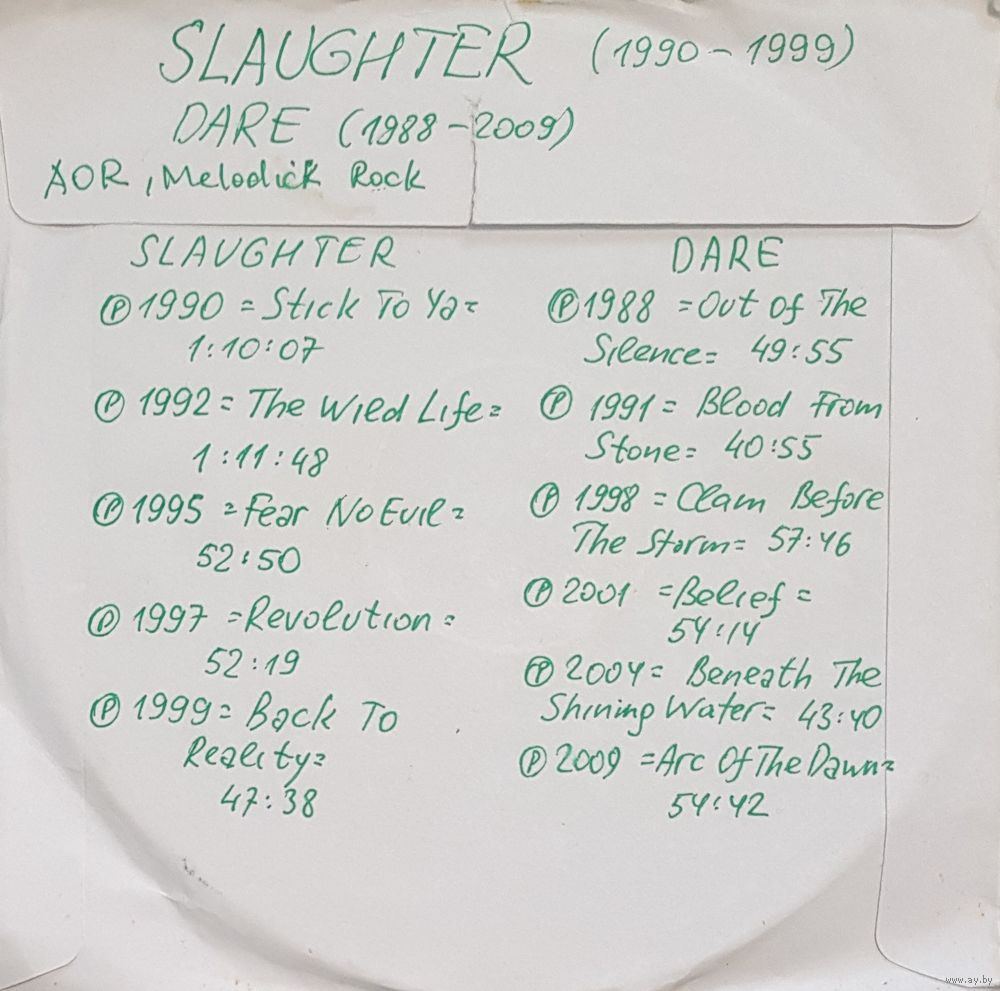 SLAUGHTER (1990-1999)
DARE (1988-2009)
AOR, Melodick Rock
SLAUGHTER
Ⓟ 1990 = Stick To Ya =
1:10:07
Ⓟ 1992 = The Wild Life =
1:11:48
Ⓟ 1995 = Fear No Evil =
52:50
Ⓟ 1997 = Revolution =
52:19
Ⓟ 1999 = Back To
Reality =
47:38
DARE
Ⓟ 1988 = Out Of The
Silence = 49:55
Ⓟ 1991 = Blood From
Stone = 40:55
Ⓟ 1998 = Clam Before
The Storm = 57:46
Ⓟ 2001 = Belief =
54:14
Ⓟ 2004 = Beneath The
Shining Water = 43:40
Ⓟ 2009 = Arc Of The Dawn =
54:42
www.ay.by